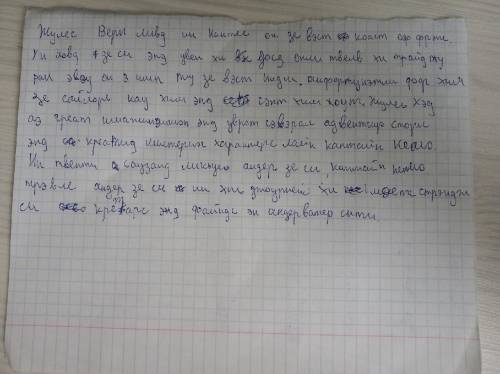 Жулес Верн ливд ин Нантес он зе вэст коаст оф франс.
Хи ловд зе си энд увен хи воз онли твелв хи трайд ту
ран эвэу он э шип ту зе вэст Индис. анфорчунэтли форе хим
зе сайлорс кау хим энд сэнт хим хоум. Жулес Хэд
аз греат имагинэшион энд уврот сэвэрал адвентшур сторис
энд креатид мистериус харакнерс лайк каптайн Немо.
Ин твенти саузанд лигиус андер зе си, каптайн немо
трэвлс андер зе си ин хис джоурней хи меетс стрэндж
си креатарс энд файндс эн андерватер сити.